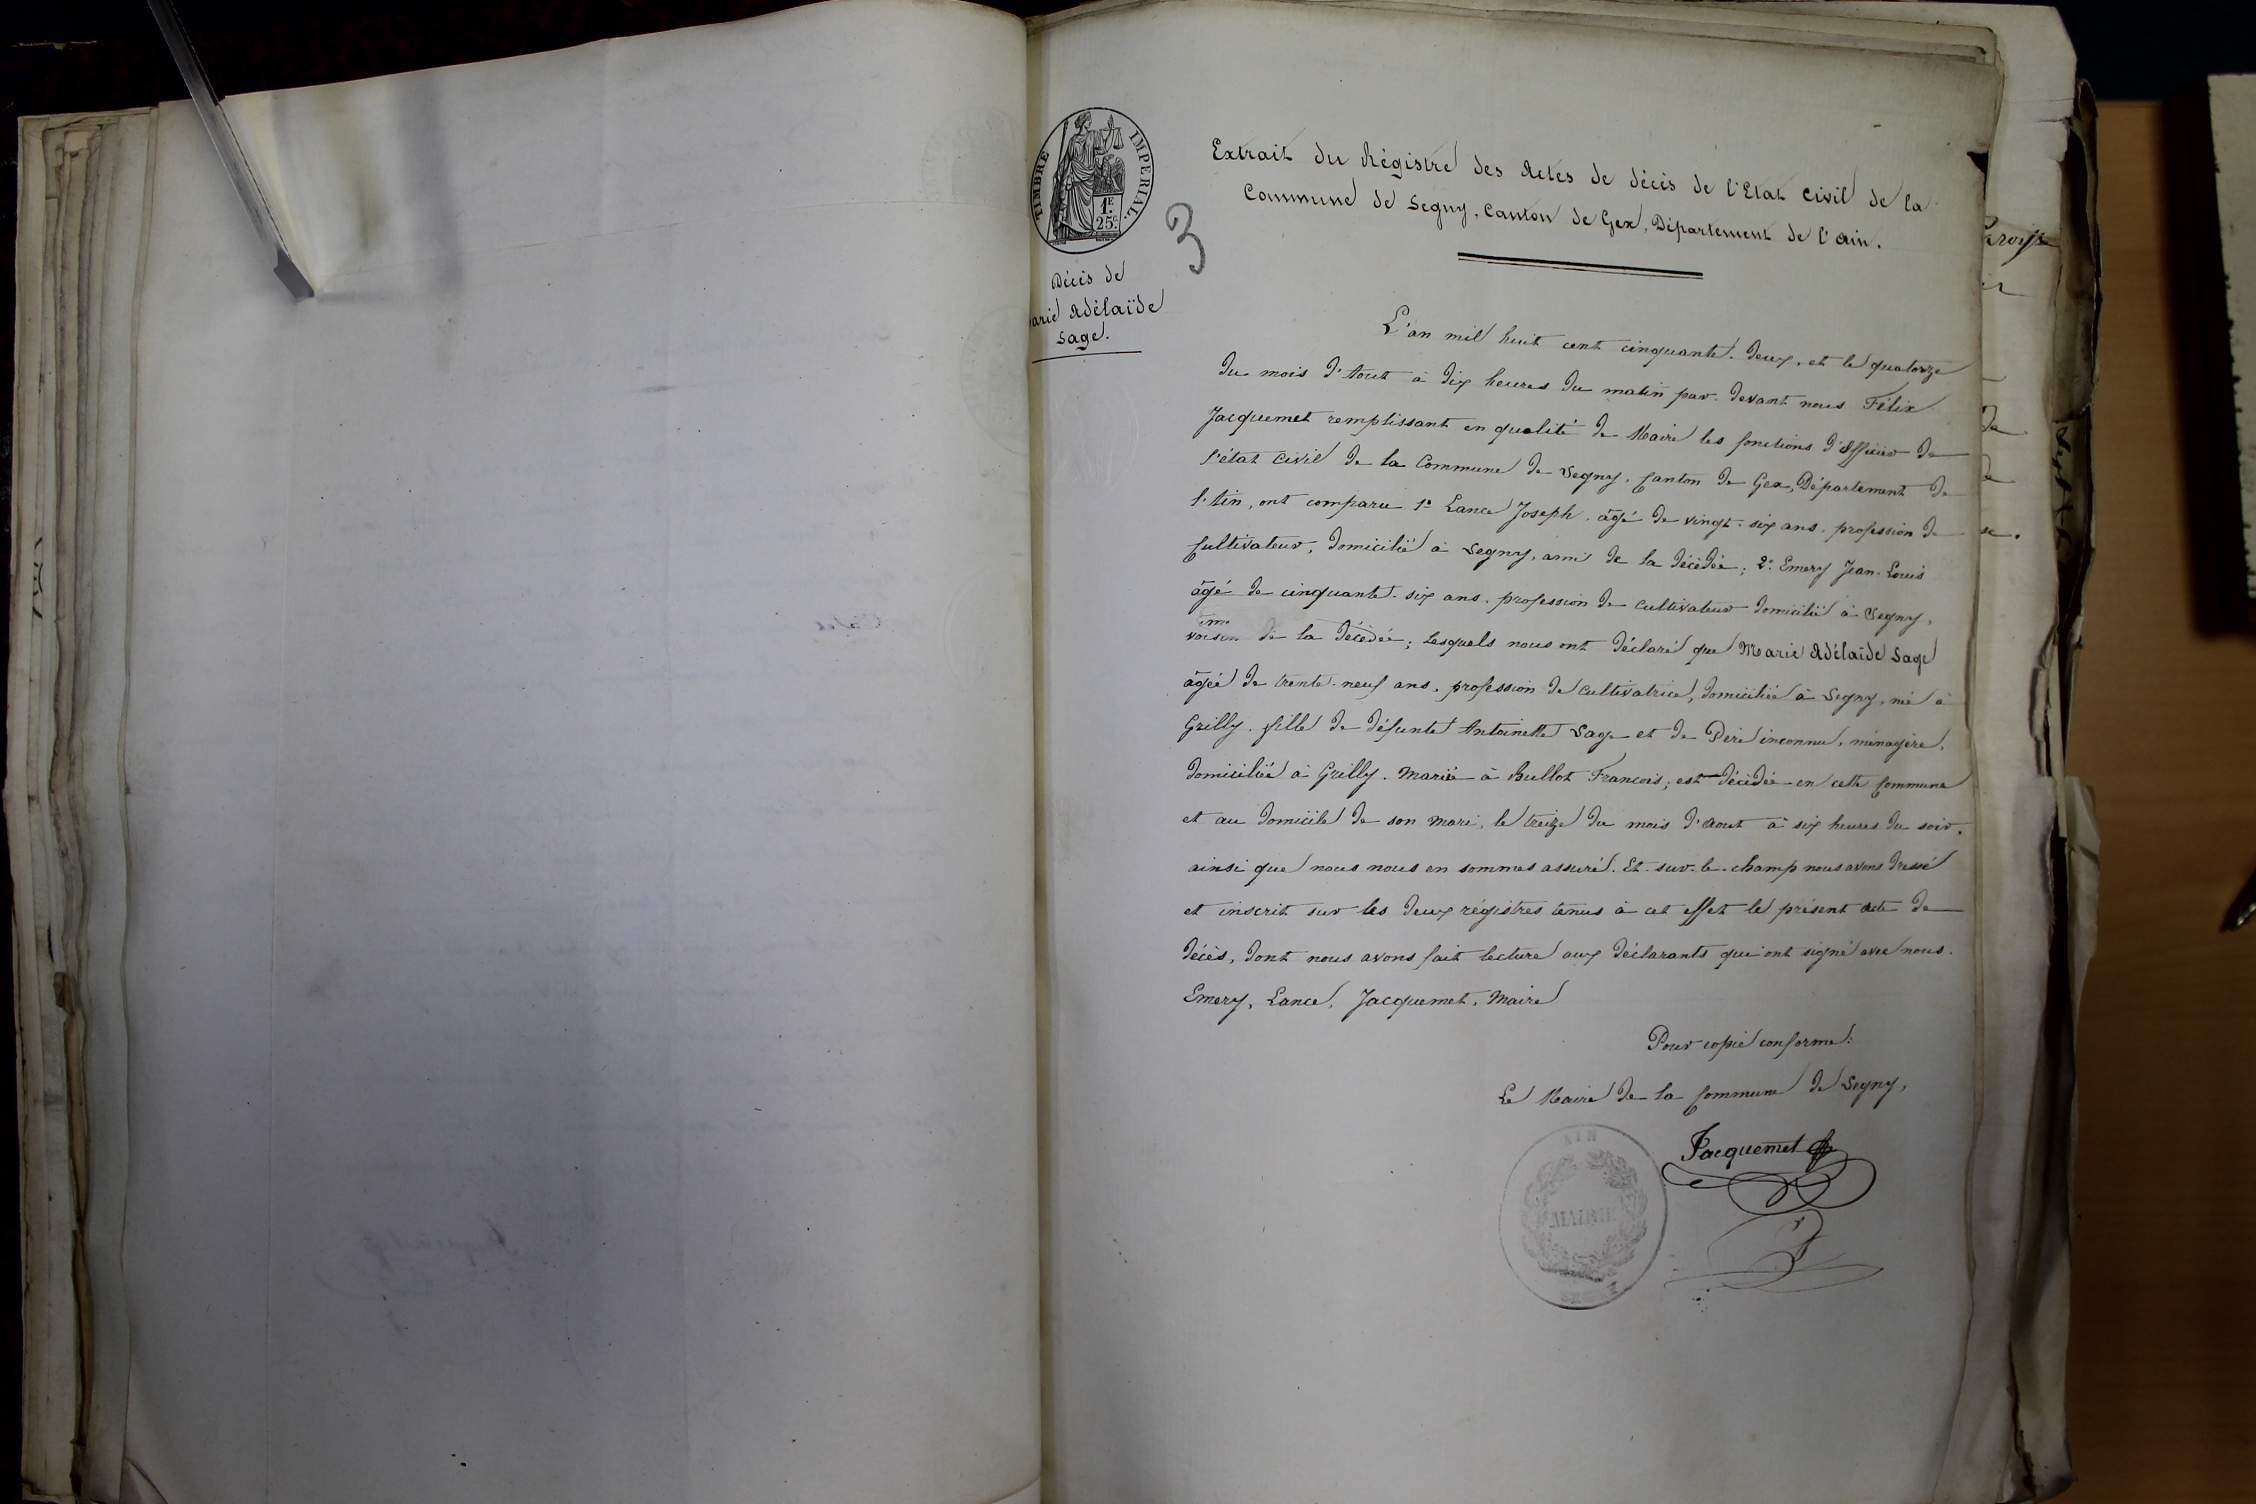 TIMBRE IMPÉRIAL.
1F.
25c.
3
Décès de
arie Adélaïde
Sage.
Extrait du Régistre des Actes de décès de l'Etat Civil de la
Commune de Segny, Canton de Gex, Département de l'Ain.
L'an mil huit cent cinquante-deux, et le quatorze
du mois d'Aout à dix heures du matin par-devant nous Félix
Jacquemet remplissant en qualité de Maire les fonctions d'Officier de
l'état Civil de la Commune de Segny, Canton de Gex, Département de
l'Ain, ont comparu 1º Lance Joseph, âgé de vingt-six ans, profession de
Cultivateur, domicilié à Segny, ami de la décédée; 2º Emery Jean-Louis
âgé de cinquante-six ans, profession de Cultivateur domicilié à Segny,
voisin de la décédée; Lesquels nous ont déclaré que Marie Adélaïde Sage
âgée de trente-neuf ans, profession de Cultivatrice, domiciliée à Segny, né à
Grilly, fille de défunte Antoinette Sage et de Père inconnu, ménagère,
domiciliée à Grilly. Mariée à Bullot François; est décédée en cette Commune
et au domicile de son mari, le treize du mois d'Aout à six heures du soir,
ainsi que nous nous en sommes assuré. Et sur-le-champ nous avons dressé
et inscrit sur les deux régistres tenus à cet effet le présent acte de
décès, dont nous avons fait lecture aux déclarants qui ont signé avec nous.
Emery, Lance, Jacquemet, Maire
Pour copie conforme:
Le Maire de la Commune de Segny,
Jacquemet
AIN
MAIRIE